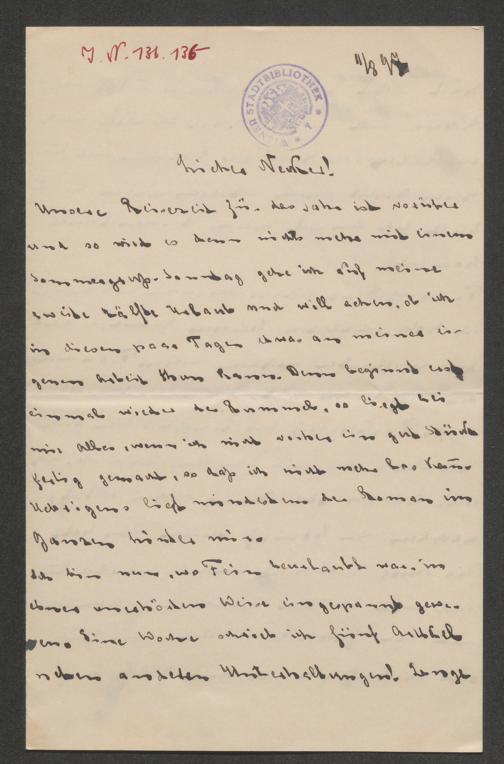 J. N. 131.135
11/8 97
WIENER STADTBIBLIOTHEK
Lieber Necker!
Unsere Reisezeit für das Jahr ist vorüber
und so wird es denn nichts mehr mit einem
Sommergruß. Sonntag gehe ich auf meine
zweite Hälfte Urlaub und will sehen, ob ich
in diesen paar Tagen etwas an meiner ei-
genen Arbeit thun kann. Denn beginnt erst
einmal wieder der Rummel, so liegt bei
mir Alles, wenn ich nicht vorher ein gut Stück
fertig gemacht, so daß ich nicht mehr los kann.
Uebrigens liegt mindestens der Roman im
Ganzen hinter mir.
Ich bin nun, wo Fein beurlaubt war, in
einer unerhörten Weise eingespannt gewe-
sen. Eine Woche schrieb ich fünf Artikel
neben anderen Unterhaltungen! Lange